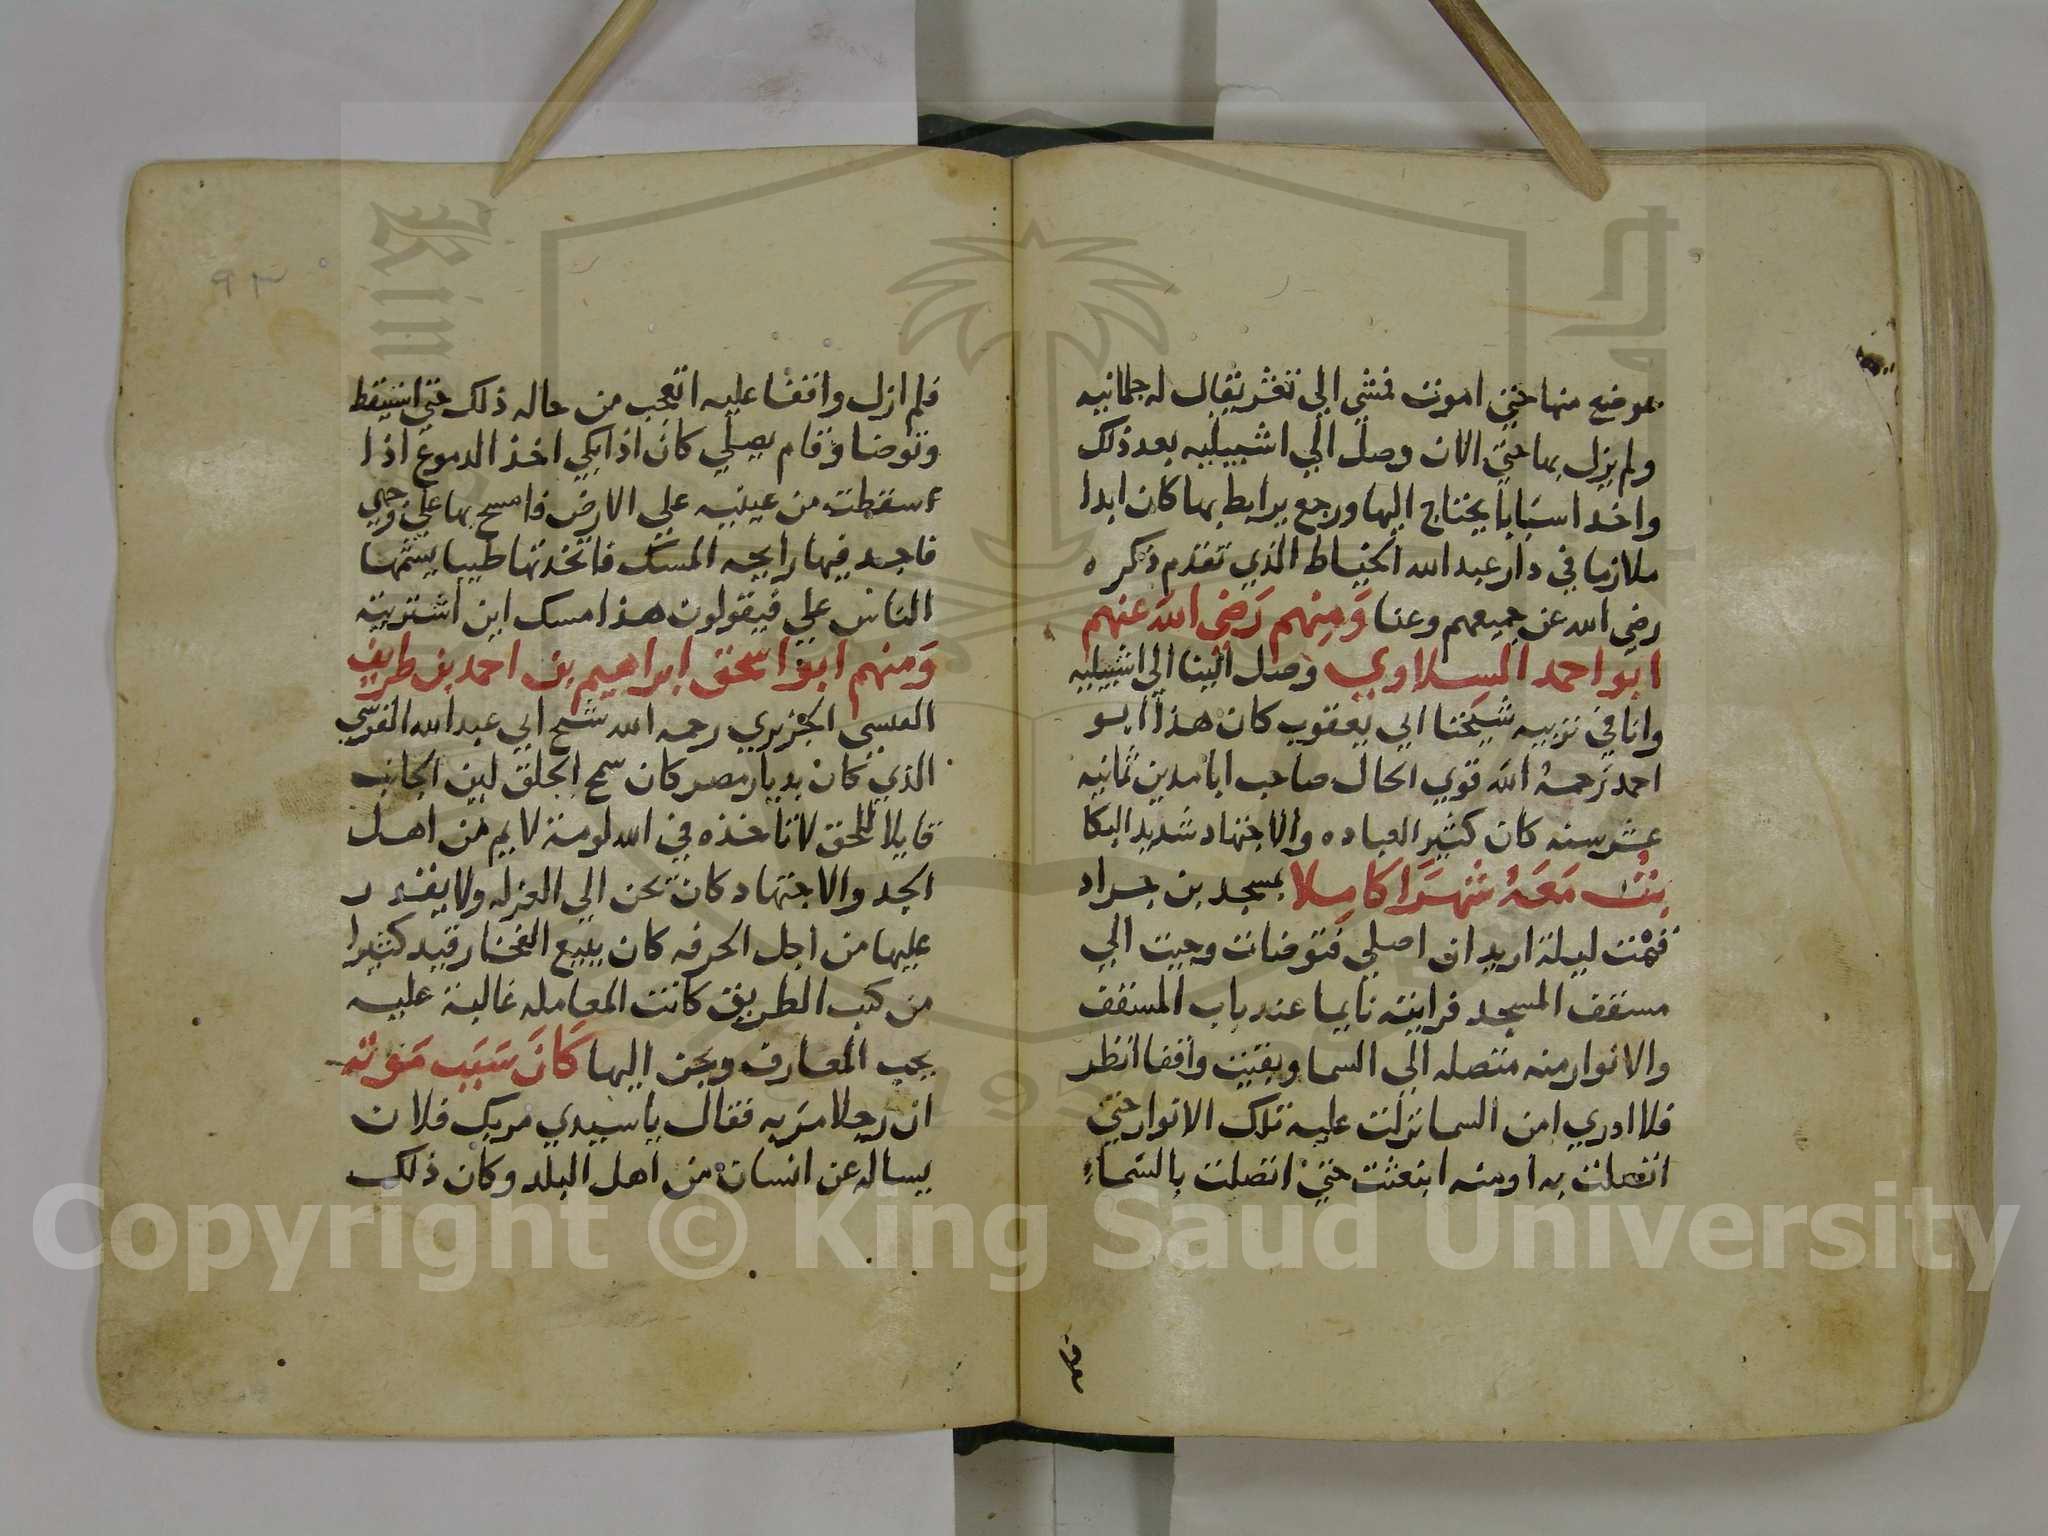 موضع منها حتى اموت فمشي الي ثغر يقال له جلمانيه
ولم يزل بها حتى الان وصل الي اشبيليه بعد ذلك
واخذ اسبابا يحتاج اليها ورجع يرابط بها كان ابدا
ملازما في دار عبد الله الخياط الذي تقدم ذكره
رضي الله عن جميعهم وعنا ومنهم رضي الله عنهم
ابو احمد السلاوي وصل الينا الي اشبيليه
وانا في تربيه شيخنا ابي يعقوب كان هذا ابو
احمد رحمه الله قوي الحال صاحب ابا مدين ثمانيه
عشر سنه كان كثير العباده والاجتهاد شديد البكا
بت معه شهرا كاملا بمسجد بن جراد
فقمت ليلة اريد ان اصلي فتوضات وجيت الي
مسقف المسجد فرايته نايما عند باب المسقف
والانوار منه متصله الي السما وبقيت واقفا انظر
فلا ادري امن السما نزلت عليه تلك الانوار حتى
اتصلت به او منه انبعثت حتى اتصلت بالسماء
٩٣
فلم ازل واقفا عليه اتعجب من حاله ذلك حتي استيقظ
وتوضا وقام يصلي كان اذا بكي اخذ الدموع اذا
سقطت من عينيه علي الارض فامسح بها علي وجهي
فاجد فيها رايحه المسك فاتخذتها طيبا يشمها
الناس علي فيقولون هذا مسك اين اشتريته
ومنهم ابو اسحق ابراهيم بن احمد بن طريف
العبسي الجزيري رحمه الله شيخ ابي عبد الله القرشي
الذي كان بديار مصر كان سمح الخلق لين الجانب
قايلا للحق لا تاخذه في الله لومة لايم من اهل
الجد والاجتهاد كان يحن الي العزله ولا يقدر
عليها من اجل الحرفه كان يبيع الفخار قيد كثيرا
من كتب الطريق كانت المعامله غالبة عليه
يحب المعارف ويحن اليها كان سبب موته
ان رجلا مر به فقال يا سيدي مر بك فلان
يساله عن انسان من اهل البلد وكان ذلك
Copyright © King Saud University